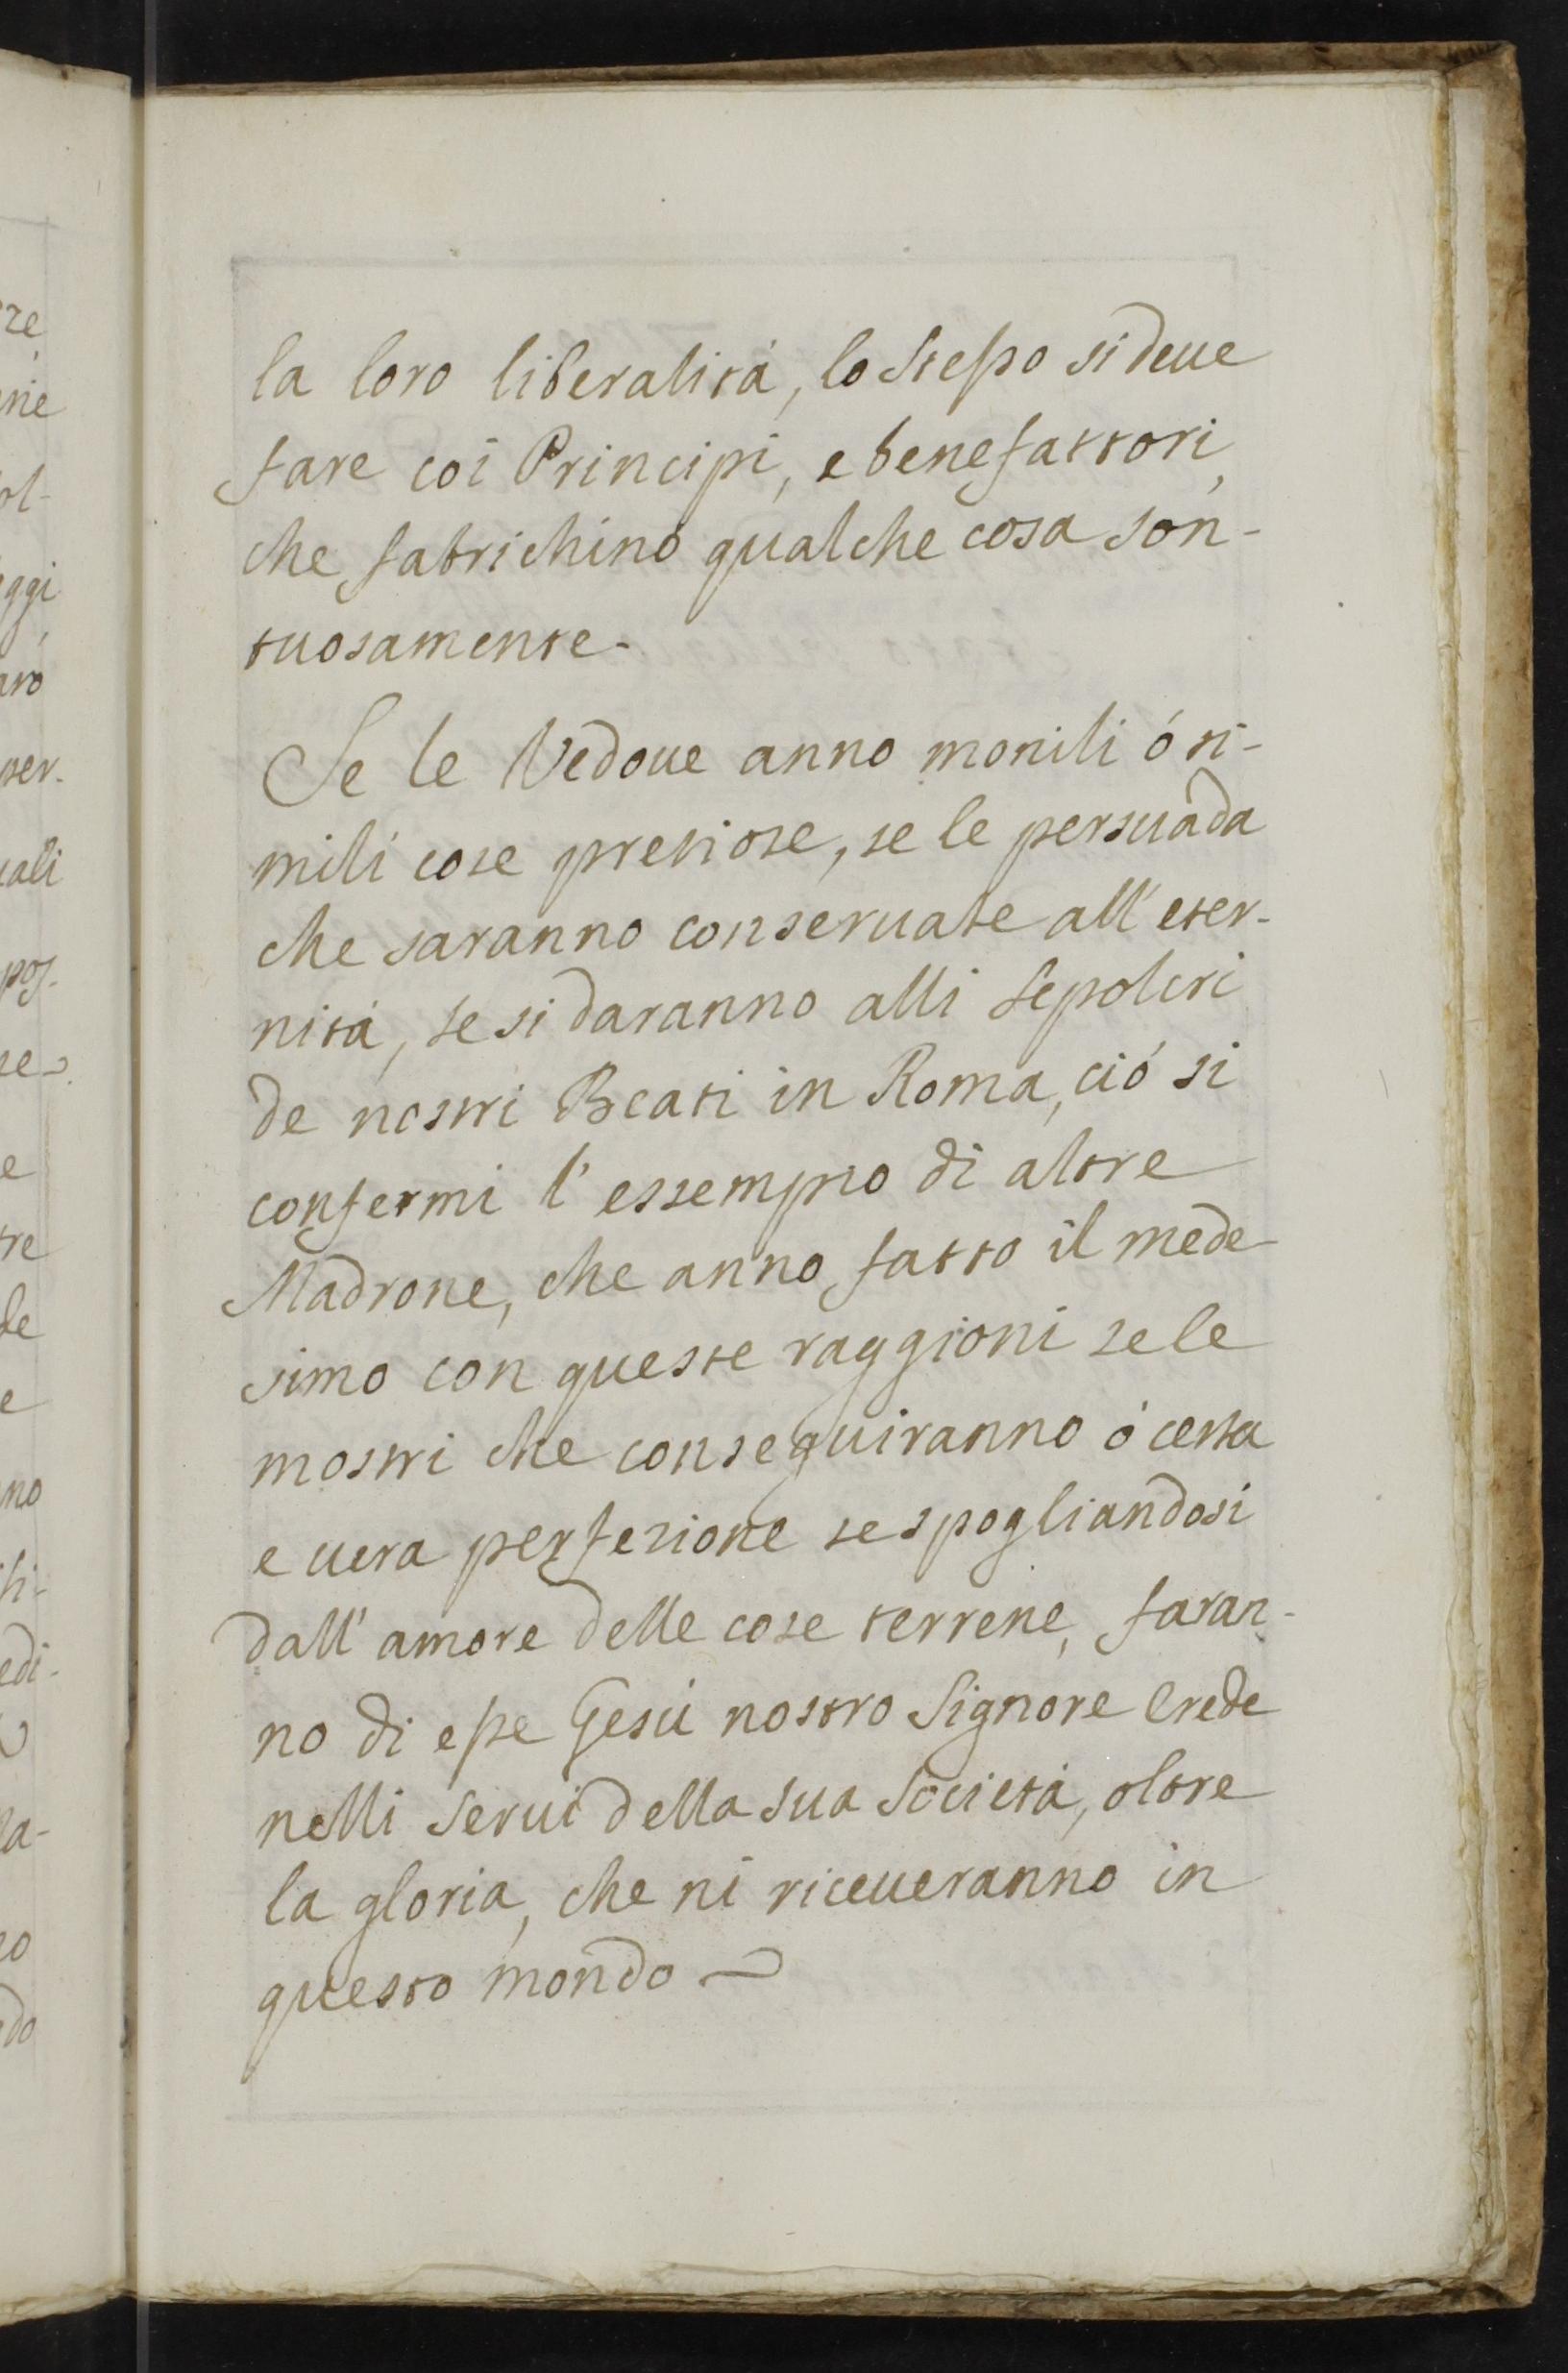 la loro liberalità, lo stesso si deue
fare coi Principi, e benefattori,
che fabrichino qualche cosa son-
tuosamente.
Se le Vedoue anno monili ó si-
mili cose pretiose, se le persuada
che saranno conseruate all'eter-
nitá, se si daranno alli Sepolcri
de nostri Beati in Roma, ció si
confermi l'essempio di altre
Madrone, che anno fatto il mede
simo con queste raggioni se le
mostri che conseguiranno ó certa
e uera perfezione se spogliandosi
dall'amore delle cose terrene, faran-
no di esse Gesú nostro Signore Erede
nelli Serui della sua Societá, oltre
la gloria, che ni riceueranno in
questo mondo
re
ne
ol-
ggi
aro
per-
cali
pos-
se
e
tre
de
e
no
edi-
la-
to
do